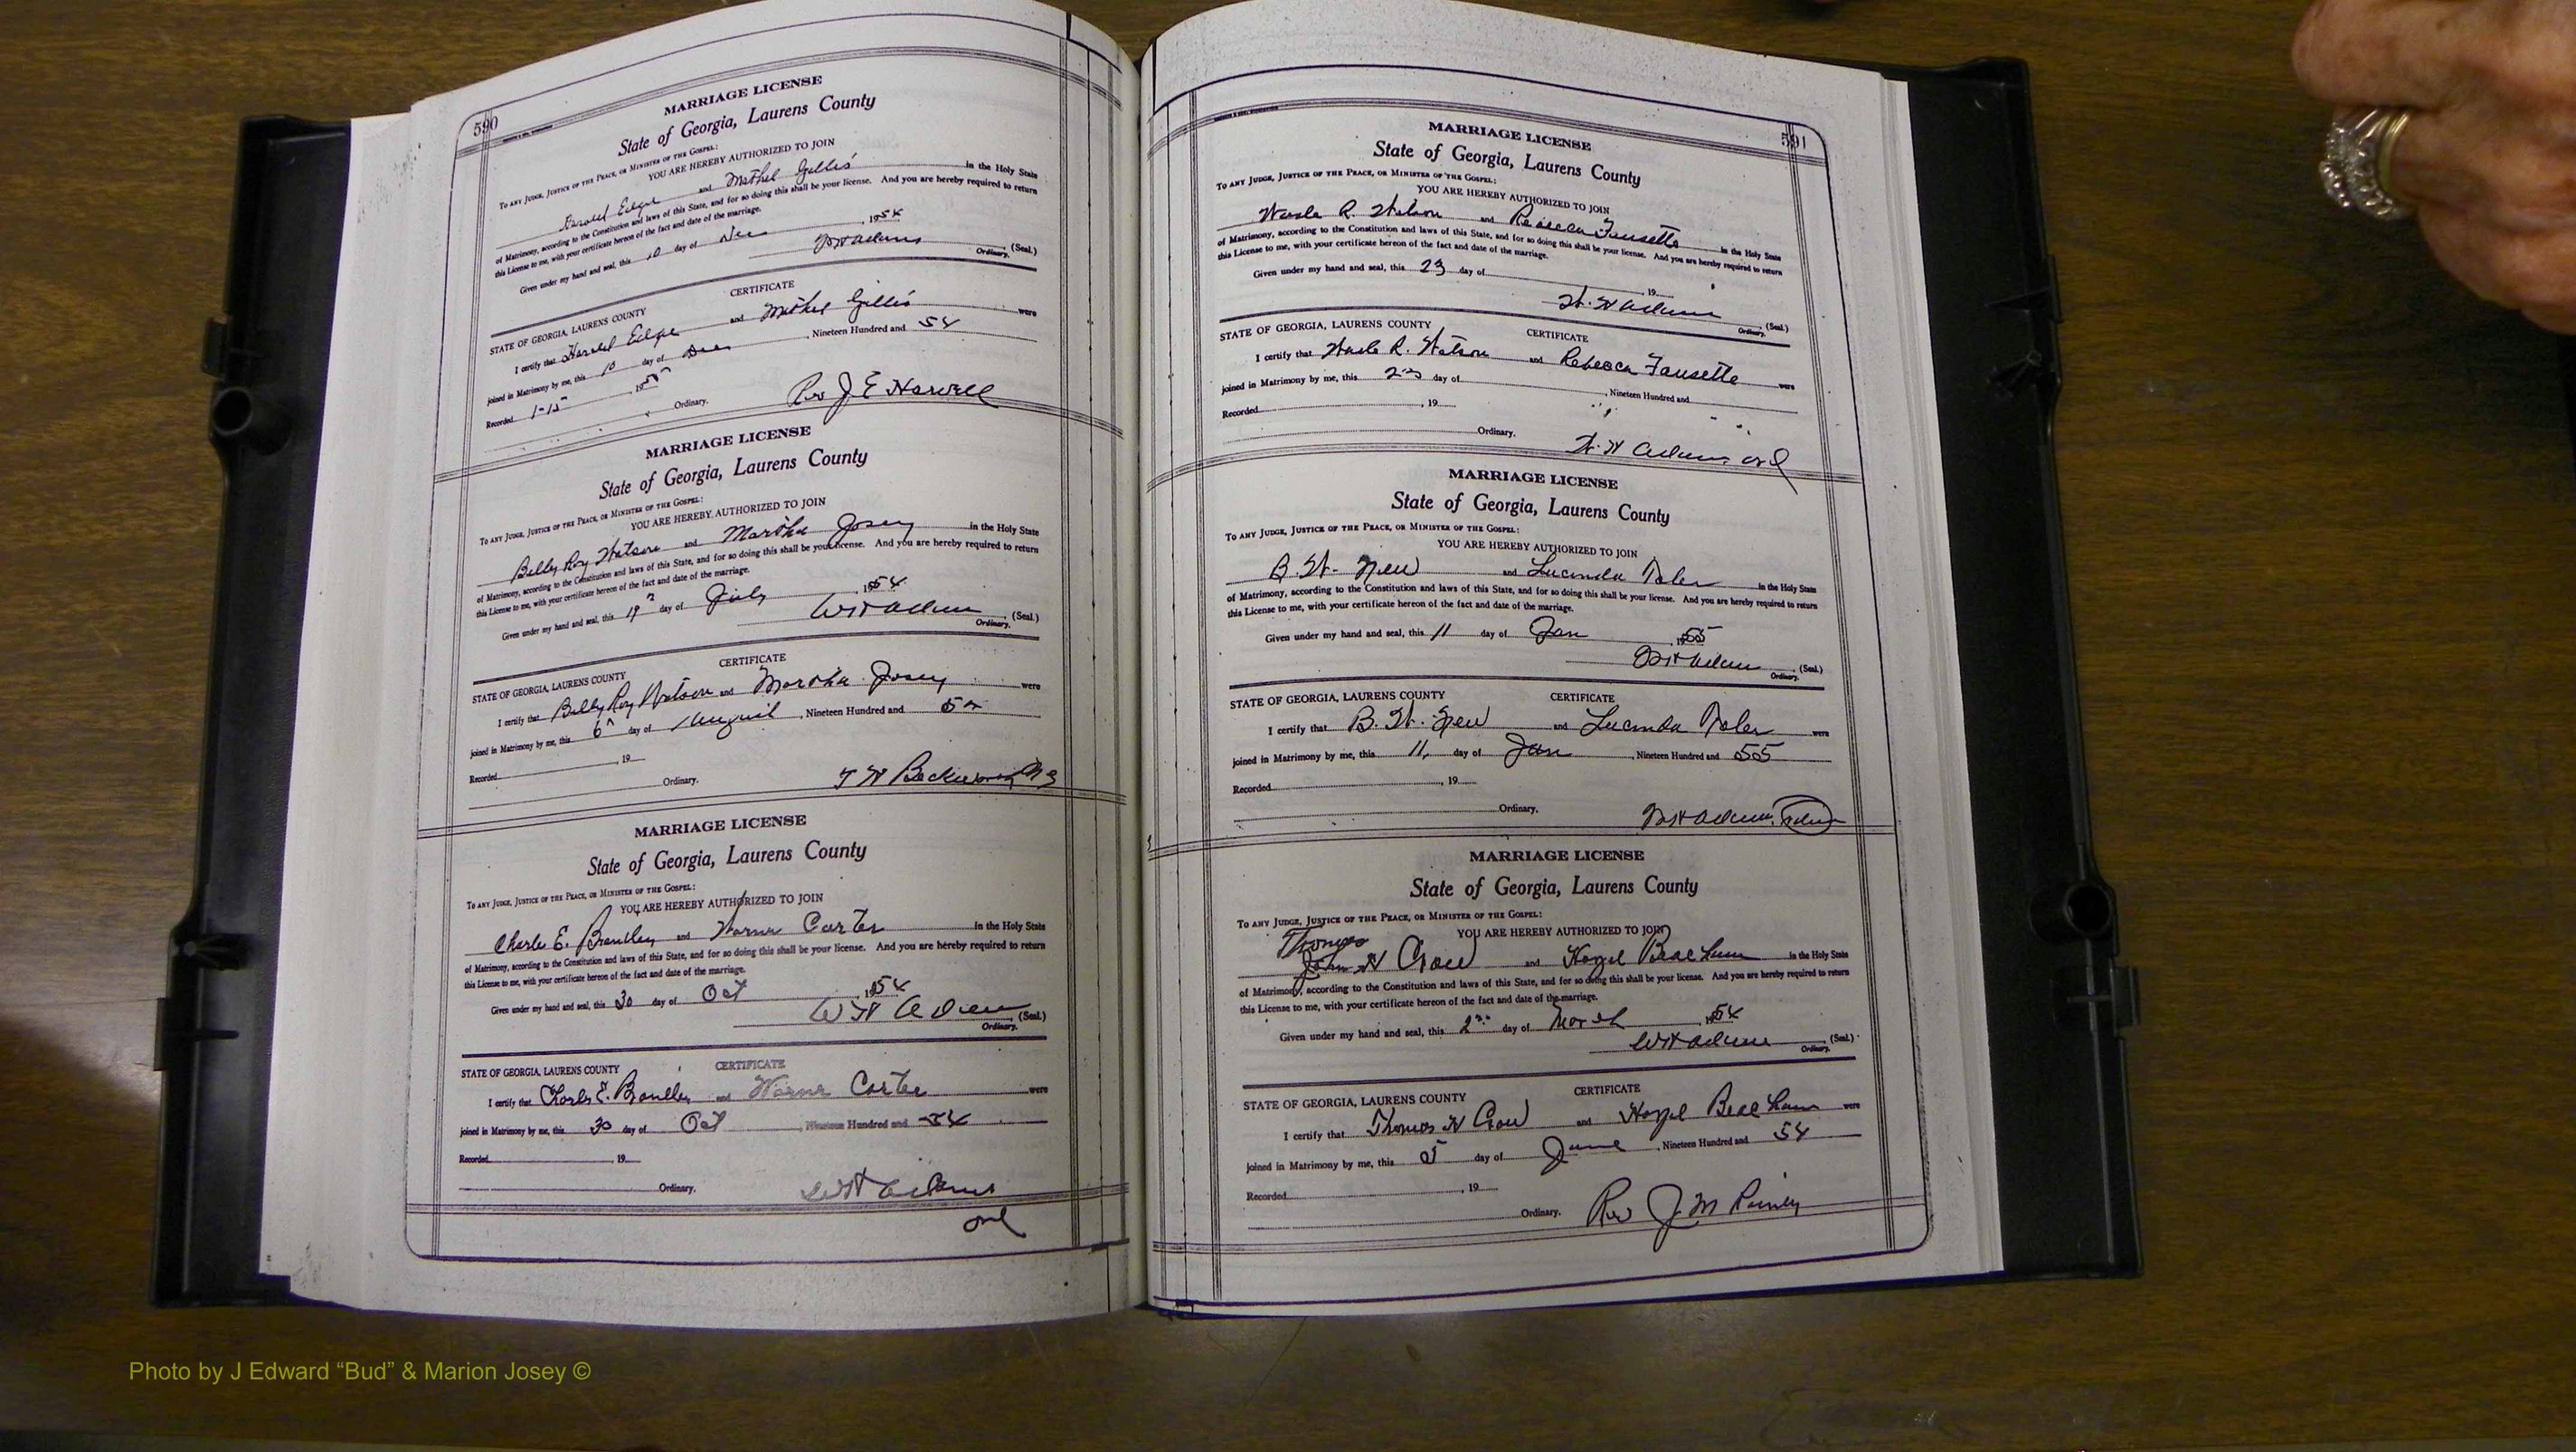 590
MARRIAGE LICENSE
State of Georgia, Laurens County
To any Judge, Justice of the Peace, or Minister of the Gospel:
YOU ARE HEREBY AUTHORIZED TO JOIN
Harold Edge and Methel Gillis in the Holy State
of Matrimony, according to the Constitution and laws of this State, and for so doing this shall be your license. And you are hereby required to return
this License to me, with your certificate hereon of the fact and date of the marriage.
Given under my hand and seal, this 10 day of Dec, 1954
WH Adams (Seal.)
Ordinary.
CERTIFICATE
STATE OF GEORGIA, LAURENS COUNTY
I certify that Harold Edge and Methel Gillis were
joined in Matrimony by me, this 10 day of Dec, Nineteen Hundred and 54
Recorded 1-15, 1955
Ordinary. Rev J E Harvell
MARRIAGE LICENSE
State of Georgia, Laurens County
To any Judge, Justice of the Peace, or Minister of the Gospel:
YOU ARE HEREBY AUTHORIZED TO JOIN
Billy Roy Watson and Martha Josey in the Holy State
of Matrimony, according to the Constitution and laws of this State, and for so doing this shall be your license. And you are hereby required to return
this License to me, with your certificate hereon of the fact and date of the marriage.
Given under my hand and seal, this 19 day of July, 1954
WH Adams (Seal.)
Ordinary.
CERTIFICATE
STATE OF GEORGIA, LAURENS COUNTY
I certify that Billy Roy Watson and Martha Josey were
joined in Matrimony by me, this 6 day of August, Nineteen Hundred and
Recorded , 19
Ordinary. T H
MARRIAGE LICENSE
State of Georgia, Laurens County
To any Judge, Justice of the Peace, or Minister of the Gospel:
YOU ARE HEREBY AUTHORIZED TO JOIN
Charles E. Brantley and Carter in the Holy State
of Matrimony, according to the Constitution and laws of this State, and for so doing this shall be your license. And you are hereby required to return
this License to me, with your certificate hereon of the fact and date of the marriage.
Given under my hand and seal, this 30 day of Oct, 1954
WH Adams (Seal.)
Ordinary.
CERTIFICATE
STATE OF GEORGIA, LAURENS COUNTY
I certify that Charles E. Brantley and Carter were
joined in Matrimony by me, this 30 day of Oct, Nineteen Hundred and 54
Recorded , 19
Ordinary. WH Adams
ord
591
MARRIAGE LICENSE
State of Georgia, Laurens County
To any Judge, Justice of the Peace, or Minister of the Gospel:
YOU ARE HEREBY AUTHORIZED TO JOIN
R. Watson and Rebecca Fausette in the Holy State
of Matrimony, according to the Constitution and laws of this State, and for so doing this shall be your license. And you are hereby required to return
this License to me, with your certificate hereon of the fact and date of the marriage.
Given under my hand and seal, this 23 day of , 19
W. H Adams (Seal.)
Ordinary.
CERTIFICATE
STATE OF GEORGIA, LAURENS COUNTY
I certify that R. Watson and Rebecca Fausette were
joined in Matrimony by me, this 23 day of , Nineteen Hundred and
Recorded , 19
Ordinary. W. H Adams ord
MARRIAGE LICENSE
State of Georgia, Laurens County
To any Judge, Justice of the Peace, or Minister of the Gospel:
YOU ARE HEREBY AUTHORIZED TO JOIN
B. W. New and Lucinda Toler in the Holy State
of Matrimony, according to the Constitution and laws of this State, and for so doing this shall be your license. And you are hereby required to return
this License to me, with your certificate hereon of the fact and date of the marriage.
Given under my hand and seal, this 11 day of Jan, 1955
WH Adams (Seal.)
Ordinary.
CERTIFICATE
STATE OF GEORGIA, LAURENS COUNTY
I certify that B. W. New and Lucinda Toler were
joined in Matrimony by me, this 11, day of Jan, Nineteen Hundred and 55
Recorded , 19
Ordinary. WH Adams
MARRIAGE LICENSE
State of Georgia, Laurens County
To any Judge, Justice of the Peace, or Minister of the Gospel:
YOU ARE HEREBY AUTHORIZED TO JOIN
Thomas
John H Crow and Hazel Beacham in the Holy State
of Matrimony, according to the Constitution and laws of this State, and for so doing this shall be your license. And you are hereby required to return
this License to me, with your certificate hereon of the fact and date of the marriage.
Given under my hand and seal, this day of March, 1954
WH Adams (Seal.)
Ordinary.
CERTIFICATE
STATE OF GEORGIA, LAURENS COUNTY
I certify that Thomas H Crow and Hazel Beacham were
joined in Matrimony by me, this 5 day of June, Nineteen Hundred and 54
Recorded , 19
Ordinary. Rev J. M
Photo by J Edward “Bud” & Marion Josey ©